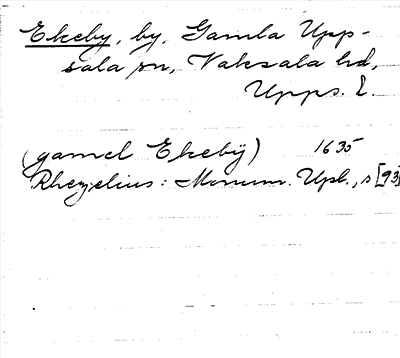 Ekeby, by, Gamla Upp-
sala sn, Vaksala hd,
Upps. L.
(gamel Ekebÿ) 1635
Rhezelius: Monum. Upl., s [93]